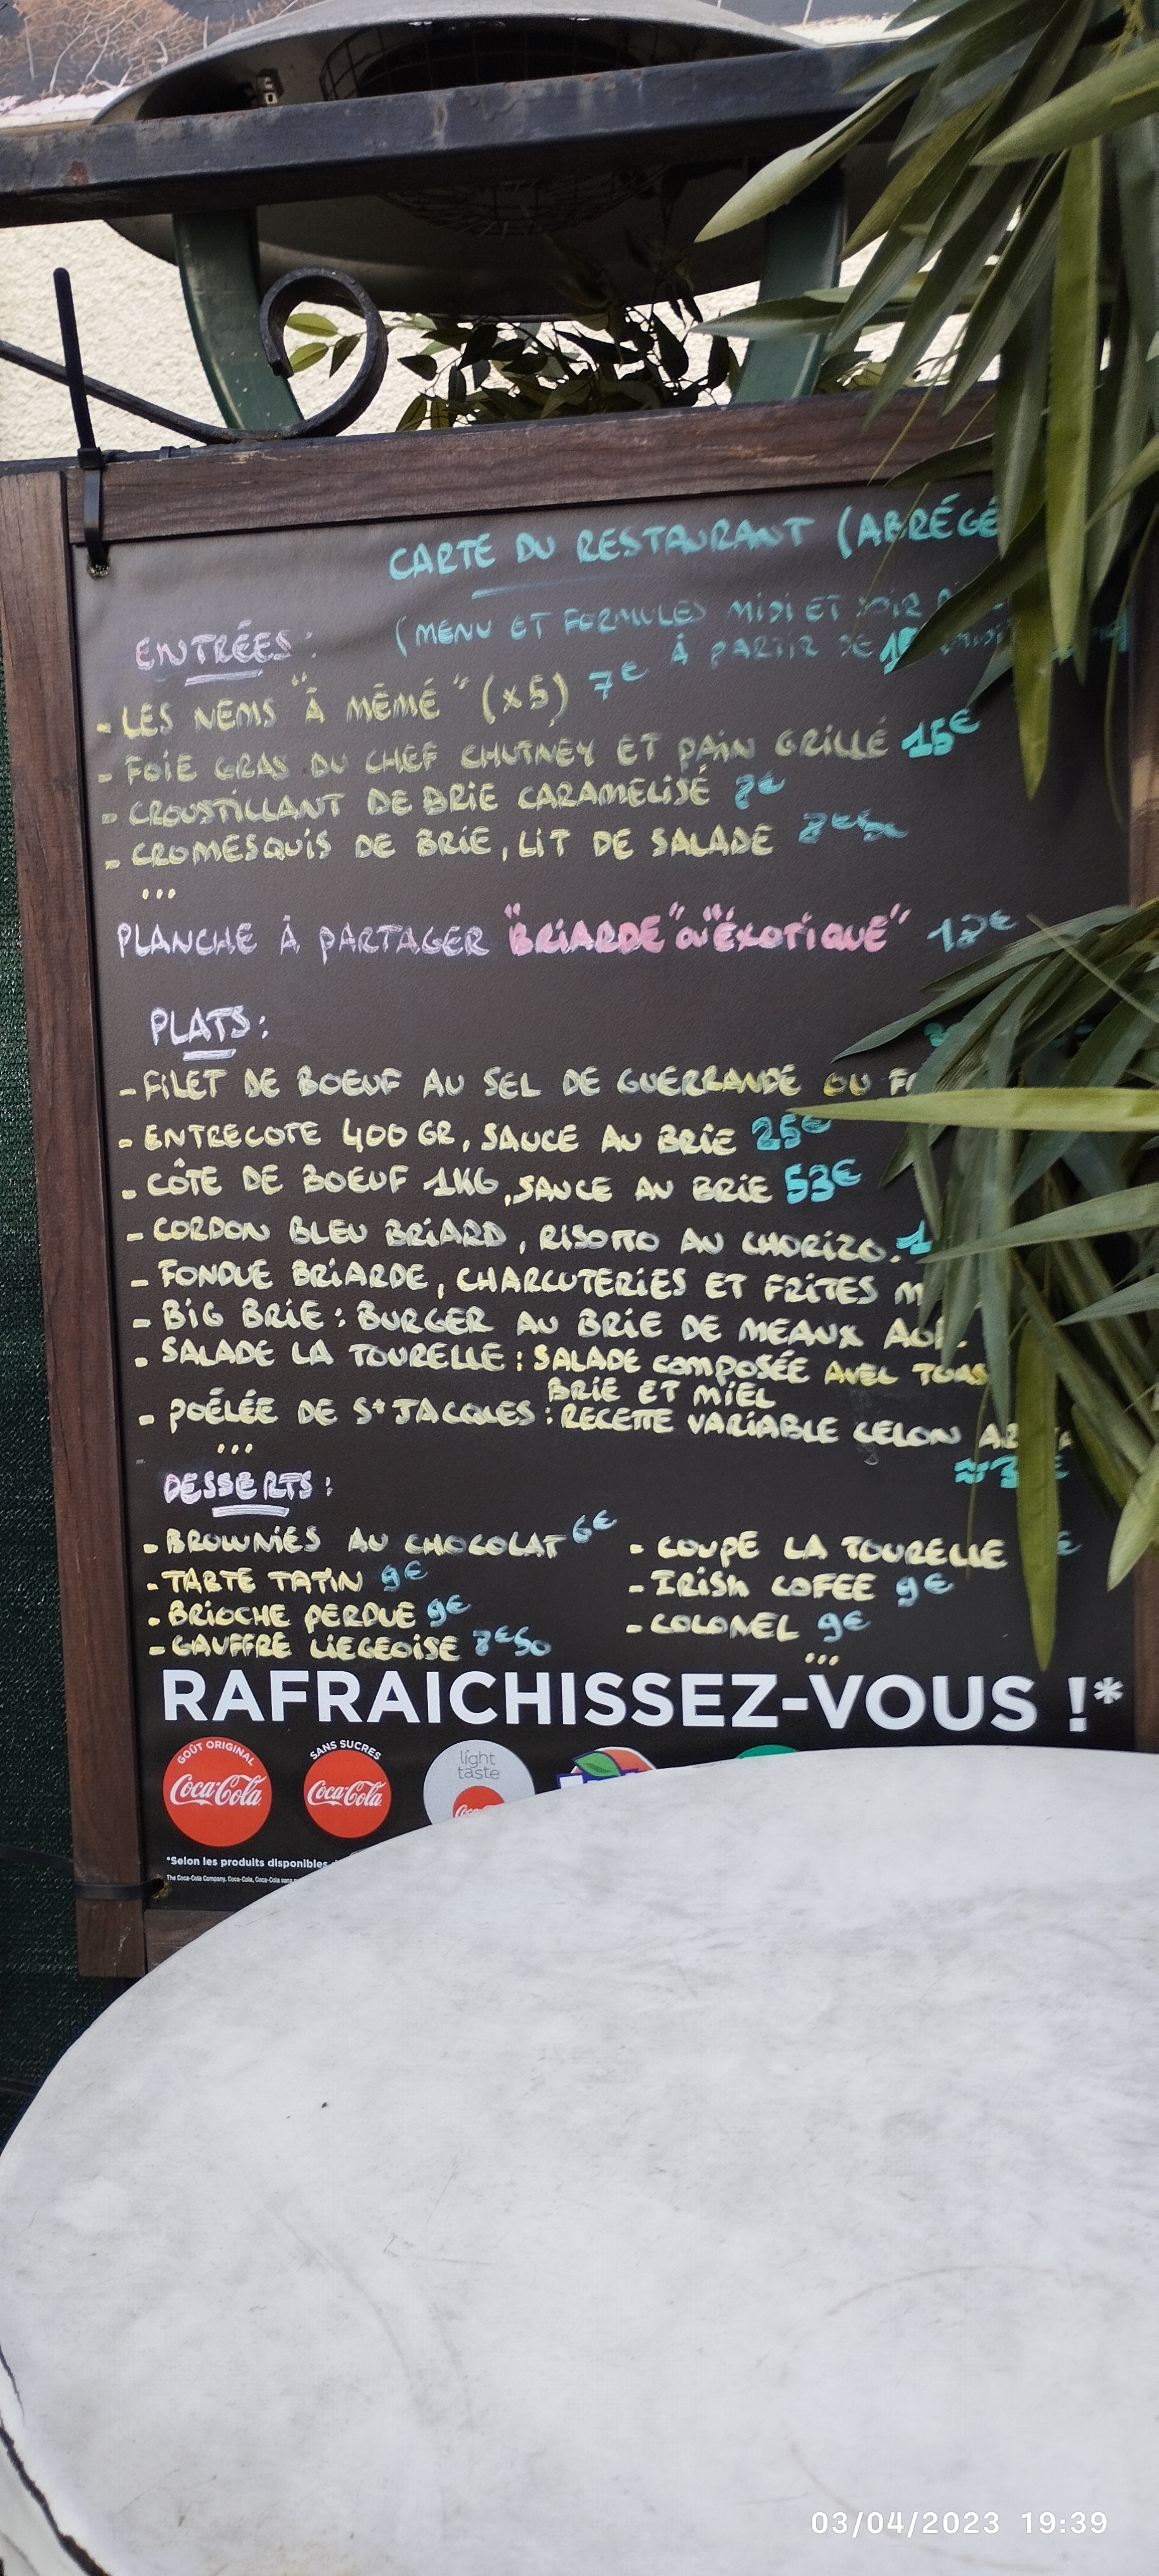 CARTE DU RESTAURANT (ABRÉGÉ
(MENU ET FORMULES MIDI ET SOIR
À PARTIR DE
ENTRÉES :
- LES NEMS "À MÉMÉ" (x5) 7€
- FOIE GRAS DU CHEF CHUTNEY ET PAIN GRILLÉ 15€
- CROUSTILLANT DE BRIE CARAMELISÉ 8€
- CROMESQUIS DE BRIE, LIT DE SALADE 8€50
...
PLANCHE À PARTAGER "BRIARDE" OU "EXOTIQUE" 12€
PLATS :
- FILET DE BOEUF AU SEL DE GUERRANDE OU
- ENTRECOTE 400 GR, SAUCE AU BRIE 25€
- CÔTE DE BOEUF 1KG, SAUCE AU BRIE 53€
- CORDON BLEU BRIARD, RISOTTO AU CHORIZO.
- FONDUE BRIARDE, CHARCUTERIES ET FRITES
- BIG BRIE : BURGER AU BRIE DE MEAUX
- SALADE LA TOURELLE : SALADE COMPOSÉE AVEC
BRIE ET MIEL
- POÊLÉE DE St JACQUES : RECETTE VARIABLE CELON
...
DESSERTS :
- BROWNIES AU CHOCOLAT 6€
- TARTE TATIN 9€
- BRIOCHE PERDUE 9€
- GAUFFRE LIEGEOISE 8€50
- COUPE LA TOURELLE €
- IRISH COFEE 9€
- COLONEL 9€
...
RAFRAICHISSEZ-VOUS !*
GOÛT ORIGINAL
Coca-Cola
SANS SUCRES
Coca-Cola
light
taste
*Selon les produits disponibles
03/04/2023 19:39